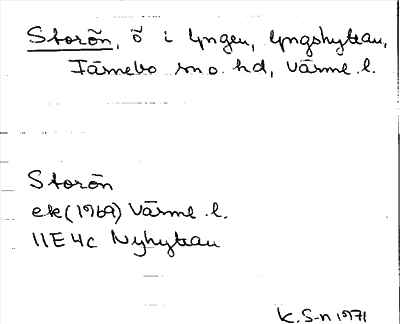 Storön, ö i Lyngen, Lyngshyttan,
Färnebo sn o. hd, Värml. l.
Storön
ek (1969) Värml. l.
11E 4c Nyhyttan
K. S-n 1971